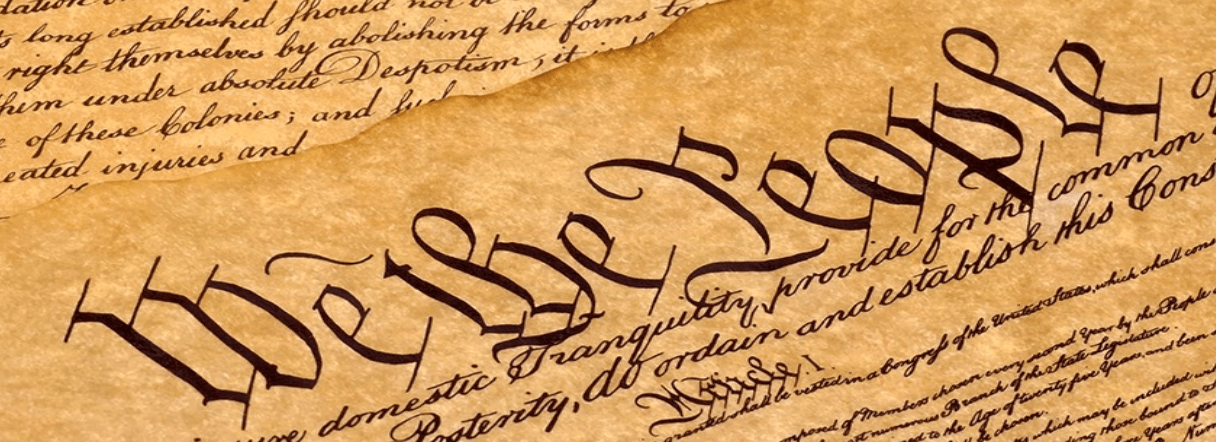 long established should not
right themselves by abolishing the forms to
them under absolute Despotism, it is
of these Colonies; and
injuries and
We the People
domestic Tranquility, provide for the common
Posterity, do ordain and establish this Cons
Article I
granted shall be vested in a Congress of the United States, which shall cons
mposed of Members chosen every second Year by the People
numerous Branch of the State Legislature.
to the Age of twenty five Years, and been
be chosen.
which may be included
those bound to
Years after